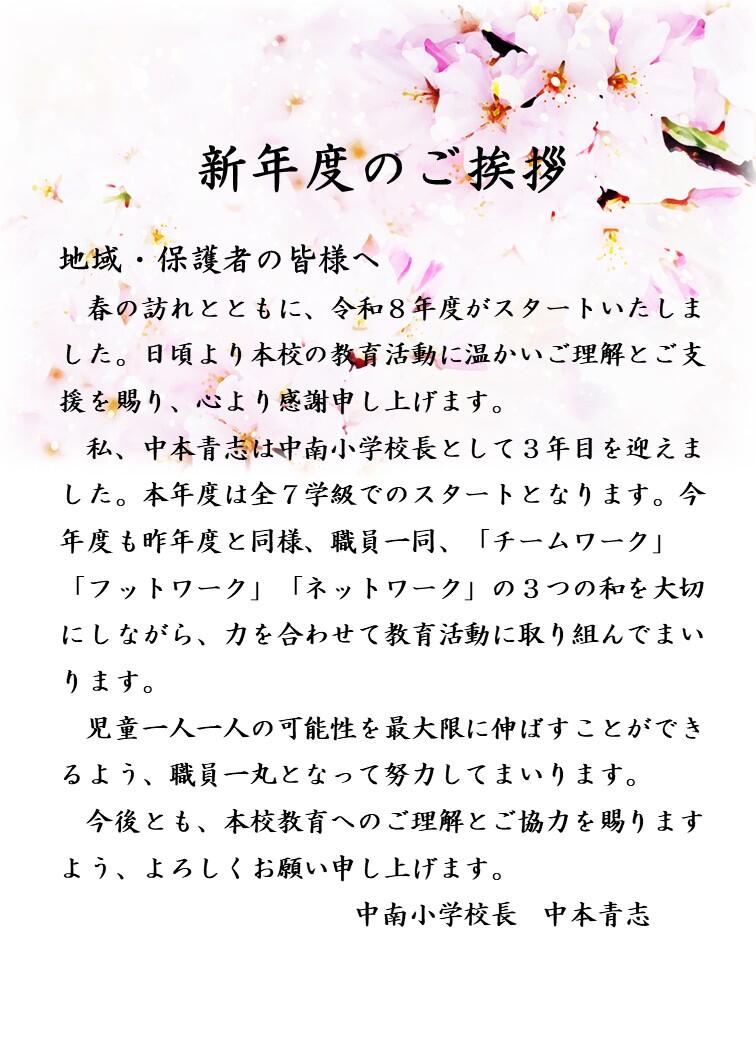 新年度のご挨拶
地域・保護者の皆様へ
　春の訪れとともに、令和８年度がスタートいたしま
した。日頃より本校の教育活動に温かいご理解とご支
援を賜り、心より感謝申し上げます。
　私、中本青志は中南小学校長として３年目を迎えま
した。本年度は全７学級でのスタートとなります。今
年度も昨年度と同様、職員一同、「チームワーク」
「フットワーク」「ネットワーク」の３つの和を大切
にしながら、力を合わせて教育活動に取り組んでまい
ります。
　児童一人一人の可能性を最大限に伸ばすことができ
るよう、職員一丸となって努力してまいります。
　今後とも、本校教育へのご理解とご協力を賜ります
よう、よろしくお願い申し上げます。
中南小学校長　中本青志